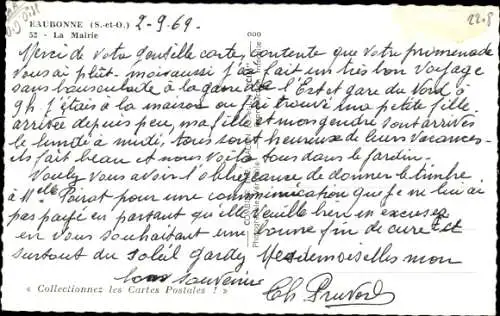 EAUBONNE (S.-et-O.) 2-9-69.
52 - La Mairie
22.8
Merci de votre gentille carte, contente que votre promenade
vous a plut. moi aussi j'ai fait un très bon voyage
sans bousculade à la gare de l'Est et gare du Nord à
9h. j'étais à la maison ou j'ai trouvé ma petite fille
arrivée depuis peu, ma fille et mon gendre sont arrivés
le lundi à midi, tous sont heureux de leurs vacances.
ils fait beau et nous voila tous dans le jardin.
Vouly vous avoir l'obligeance de donner le timbre
à Melle Poirot pour une communication que je ne lui ai
pas payé en partant qu'elle veuille bien en excuser
en vous souhaitant une bonne fin de cure et
surtout du soleil gardez Mesdemoiselles mon
bon souvenir
Ch. Pruvost
« Collectionnez les Cartes Postales ! »